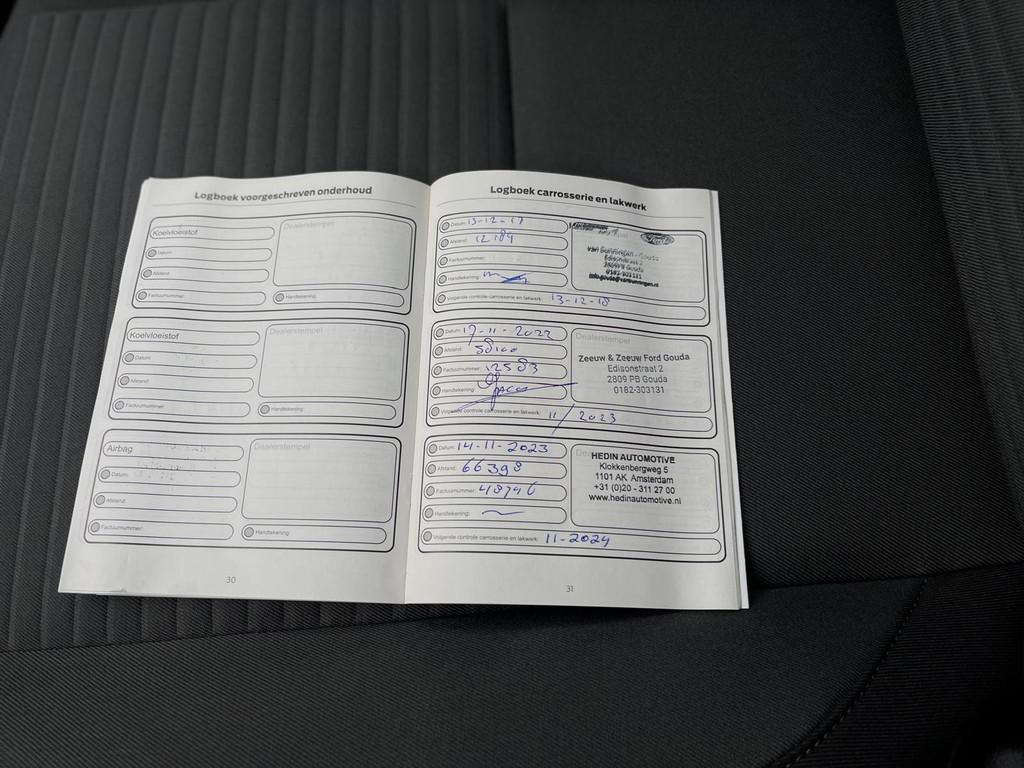 Logboek voorgeschreven onderhoud
Koelvloeistof
Dealerstempel
Datum:
Afstand:
Factuurnummer:
Handtekening:
Koelvloeistof
Dealerstempel
Datum:
Afstand:
Factuurnummer:
Handtekening:
Airbag
Dealerstempel
Datum:
Afstand:
Factuurnummer:
Handtekening:
30
Logboek carrosserie en lakwerk
Datum: 13-12-17
Afstand: 12184
Factuurnummer:
Handtekening:
Ford
Gouda
Edisonstraat 2
Gouda
Volgende controle carrosserie en lakwerk: 13-12-18
Datum: 17-11-2022
Afstand:
Factuurnummer: 12583
Handtekening:
Dealerstempel
Zeeuw & Zeeuw Ford Gouda
Edisonstraat 2
2809 PB Gouda
0182-303131
Volgende controle carrosserie en lakwerk: 11/2023
Datum: 14-11-2023
Afstand: 66398
Factuurnummer: 48746
Handtekening:
HEDIN AUTOMOTIVE
Klokkenbergweg 5
1101 AK Amsterdam
+31 (0)20 - 311 27 00
www.hedinautomotive.nl
Volgende controle carrosserie en lakwerk: 11-2024
31